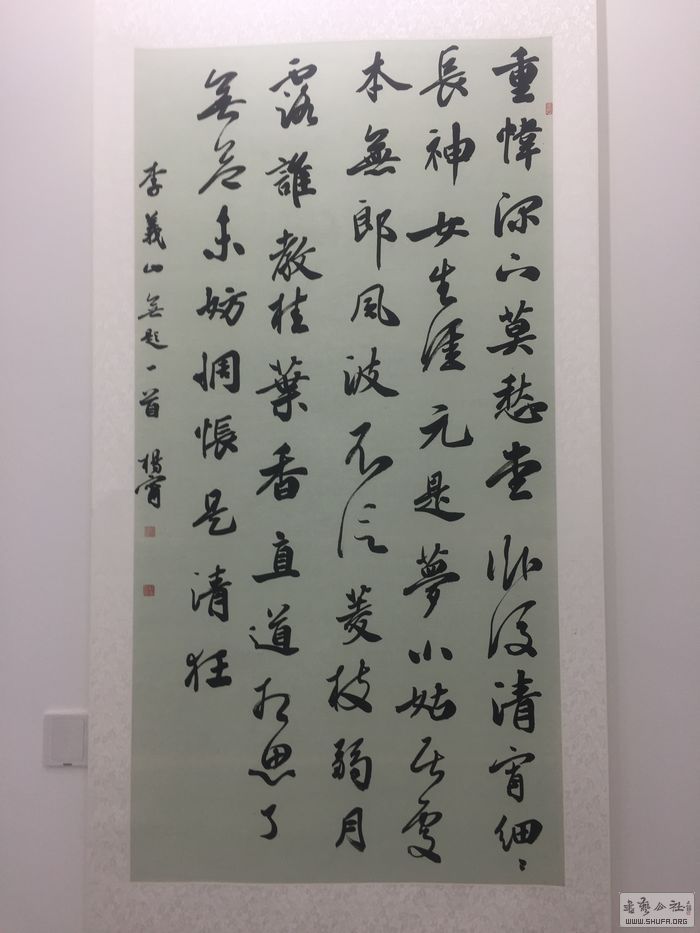 重幃深下莫愁堂卧後清宵細〻
長神女生涯元是夢小姑居處
本無郎風波不信菱枝弱月
露誰教桂葉香直道相思了
無益未妨惆悵是清狂
李義山無題一首 楊甯
書藝公社
WWW.SHUFA.ORG